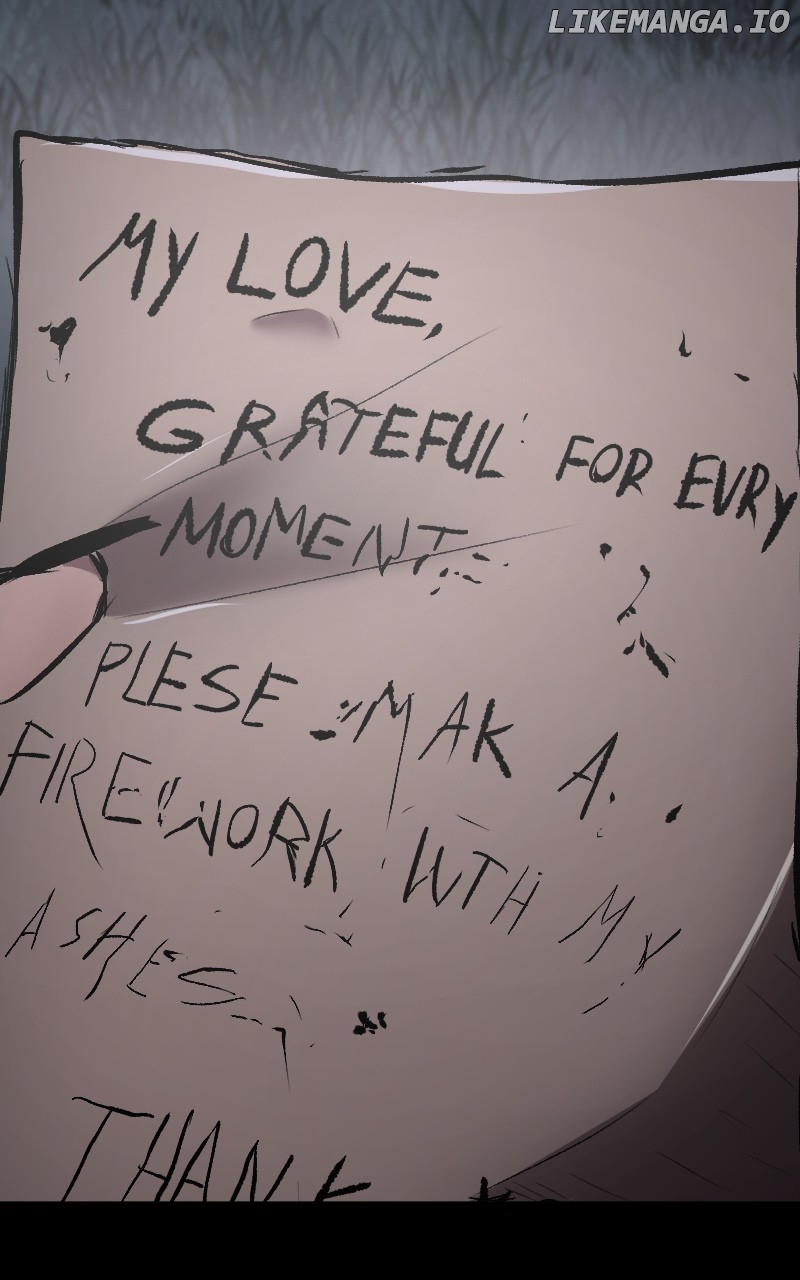 LIKEMANGA.IO
MY LOVE,
GRATEFUL FOR EVRY
MOMENT
PLESE MAK A
FIREWORK WTH MY
ASHES
THANK